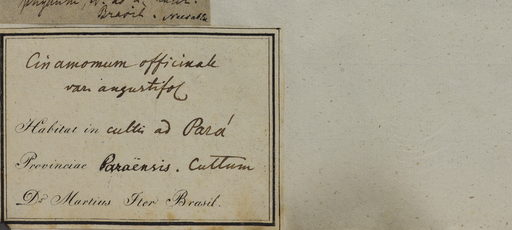 Brasil.
Cinamomum officinale
var: angustifol
Habitat in cultis ad Pará
Provinciae Paraënsis. Cultum
Dr Martius Iter Brasil.